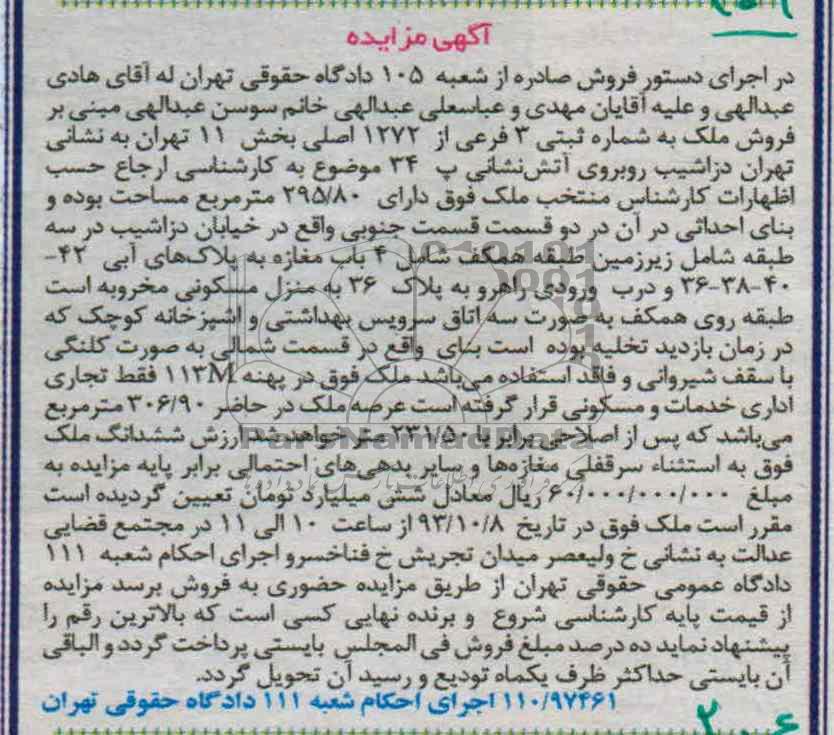 آگهی مزایده
در اجرای دستور فروش صادره از شعبه ۱۰۵ دادگاه حقوقی تهران له آقای هادی
عبدالهی و علیه آقایان مهدی و عباسعلی عبدالهی خانم سوسن عبدالهی مبنی بر
فروش ملک به شماره ثبتی ۳ فرعی از ۱۲۷۲ اصلی بخش ۱۱ تهران به نشانی
تهران دزاشیب روبروی آتش‌نشانی پ ۳۴ موضوع به کارشناسی ارجاع حسب
اظهارات کارشناس منتخب ملک فوق دارای ۲۹۵/۸۰ مترمربع مساحت بوده و
بنای احداثی در آن در دو قسمت قسمت جنوبی واقع در خیابان دزاشیب در سه
طبقه شامل زیرزمین طبقه همکف شامل ۴ باب مغازه به پلاک‌های آبی ۴۲-
۴۰-۳۸-۳۶ و درب ورودی راهرو به پلاک ۳۶ به منزل مسکونی مخروبه است
طبقه روی همکف به صورت سه اتاق سرویس بهداشتی و آشپزخانه کوچک که
در زمان بازدید تخلیه بوده است بنای واقع در قسمت شمالی به صورت کلنگی
با سقف شیروانی و فاقد استفاده می‌باشد ملک فوق در پهنه ۱۱۳M فقط تجاری
اداری خدمات و مسکونی قرار گرفته است عرصه ملک در حاضر ۳۰۶/۹۰ مترمربع
می‌باشد که پس از اصلاحی برابر با ۲۳۱/۵۰ متر خواهد شد ارزش ششدانگ ملک
فوق به استثناء سرقفلی مغازه‌ها و سایر بدهی‌های احتمالی برابر پایه مزایده به
مبلغ ۶۰/۰۰۰/۰۰۰/۰۰۰ ریال معادل شش میلیارد تومان تعیین گردیده است
مقرر است ملک فوق در تاریخ ۹۳/۱۰/۸ از ساعت ۱۰ الی ۱۱ در مجتمع قضایی
عدالت به نشانی خ ولیعصر میدان تجریش خ فناخسرو اجرای احکام شعبه ۱۱۱
دادگاه عمومی حقوقی تهران از طریق مزایده حضوری به فروش برسد مزایده
از قیمت پایه کارشناسی شروع و برنده نهایی کسی است که بالاترین رقم را
پیشنهاد نماید ده درصد مبلغ فروش فی المجلس بایستی پرداخت گردد و الباقی
آن بایستی حداکثر ظرف یکماه تودیع و رسید آن تحویل گردد.
۱۱۰/۹۷۴۶۱ اجرای احکام شعبه ۱۱۱ دادگاه حقوقی تهران
ParsNamadData